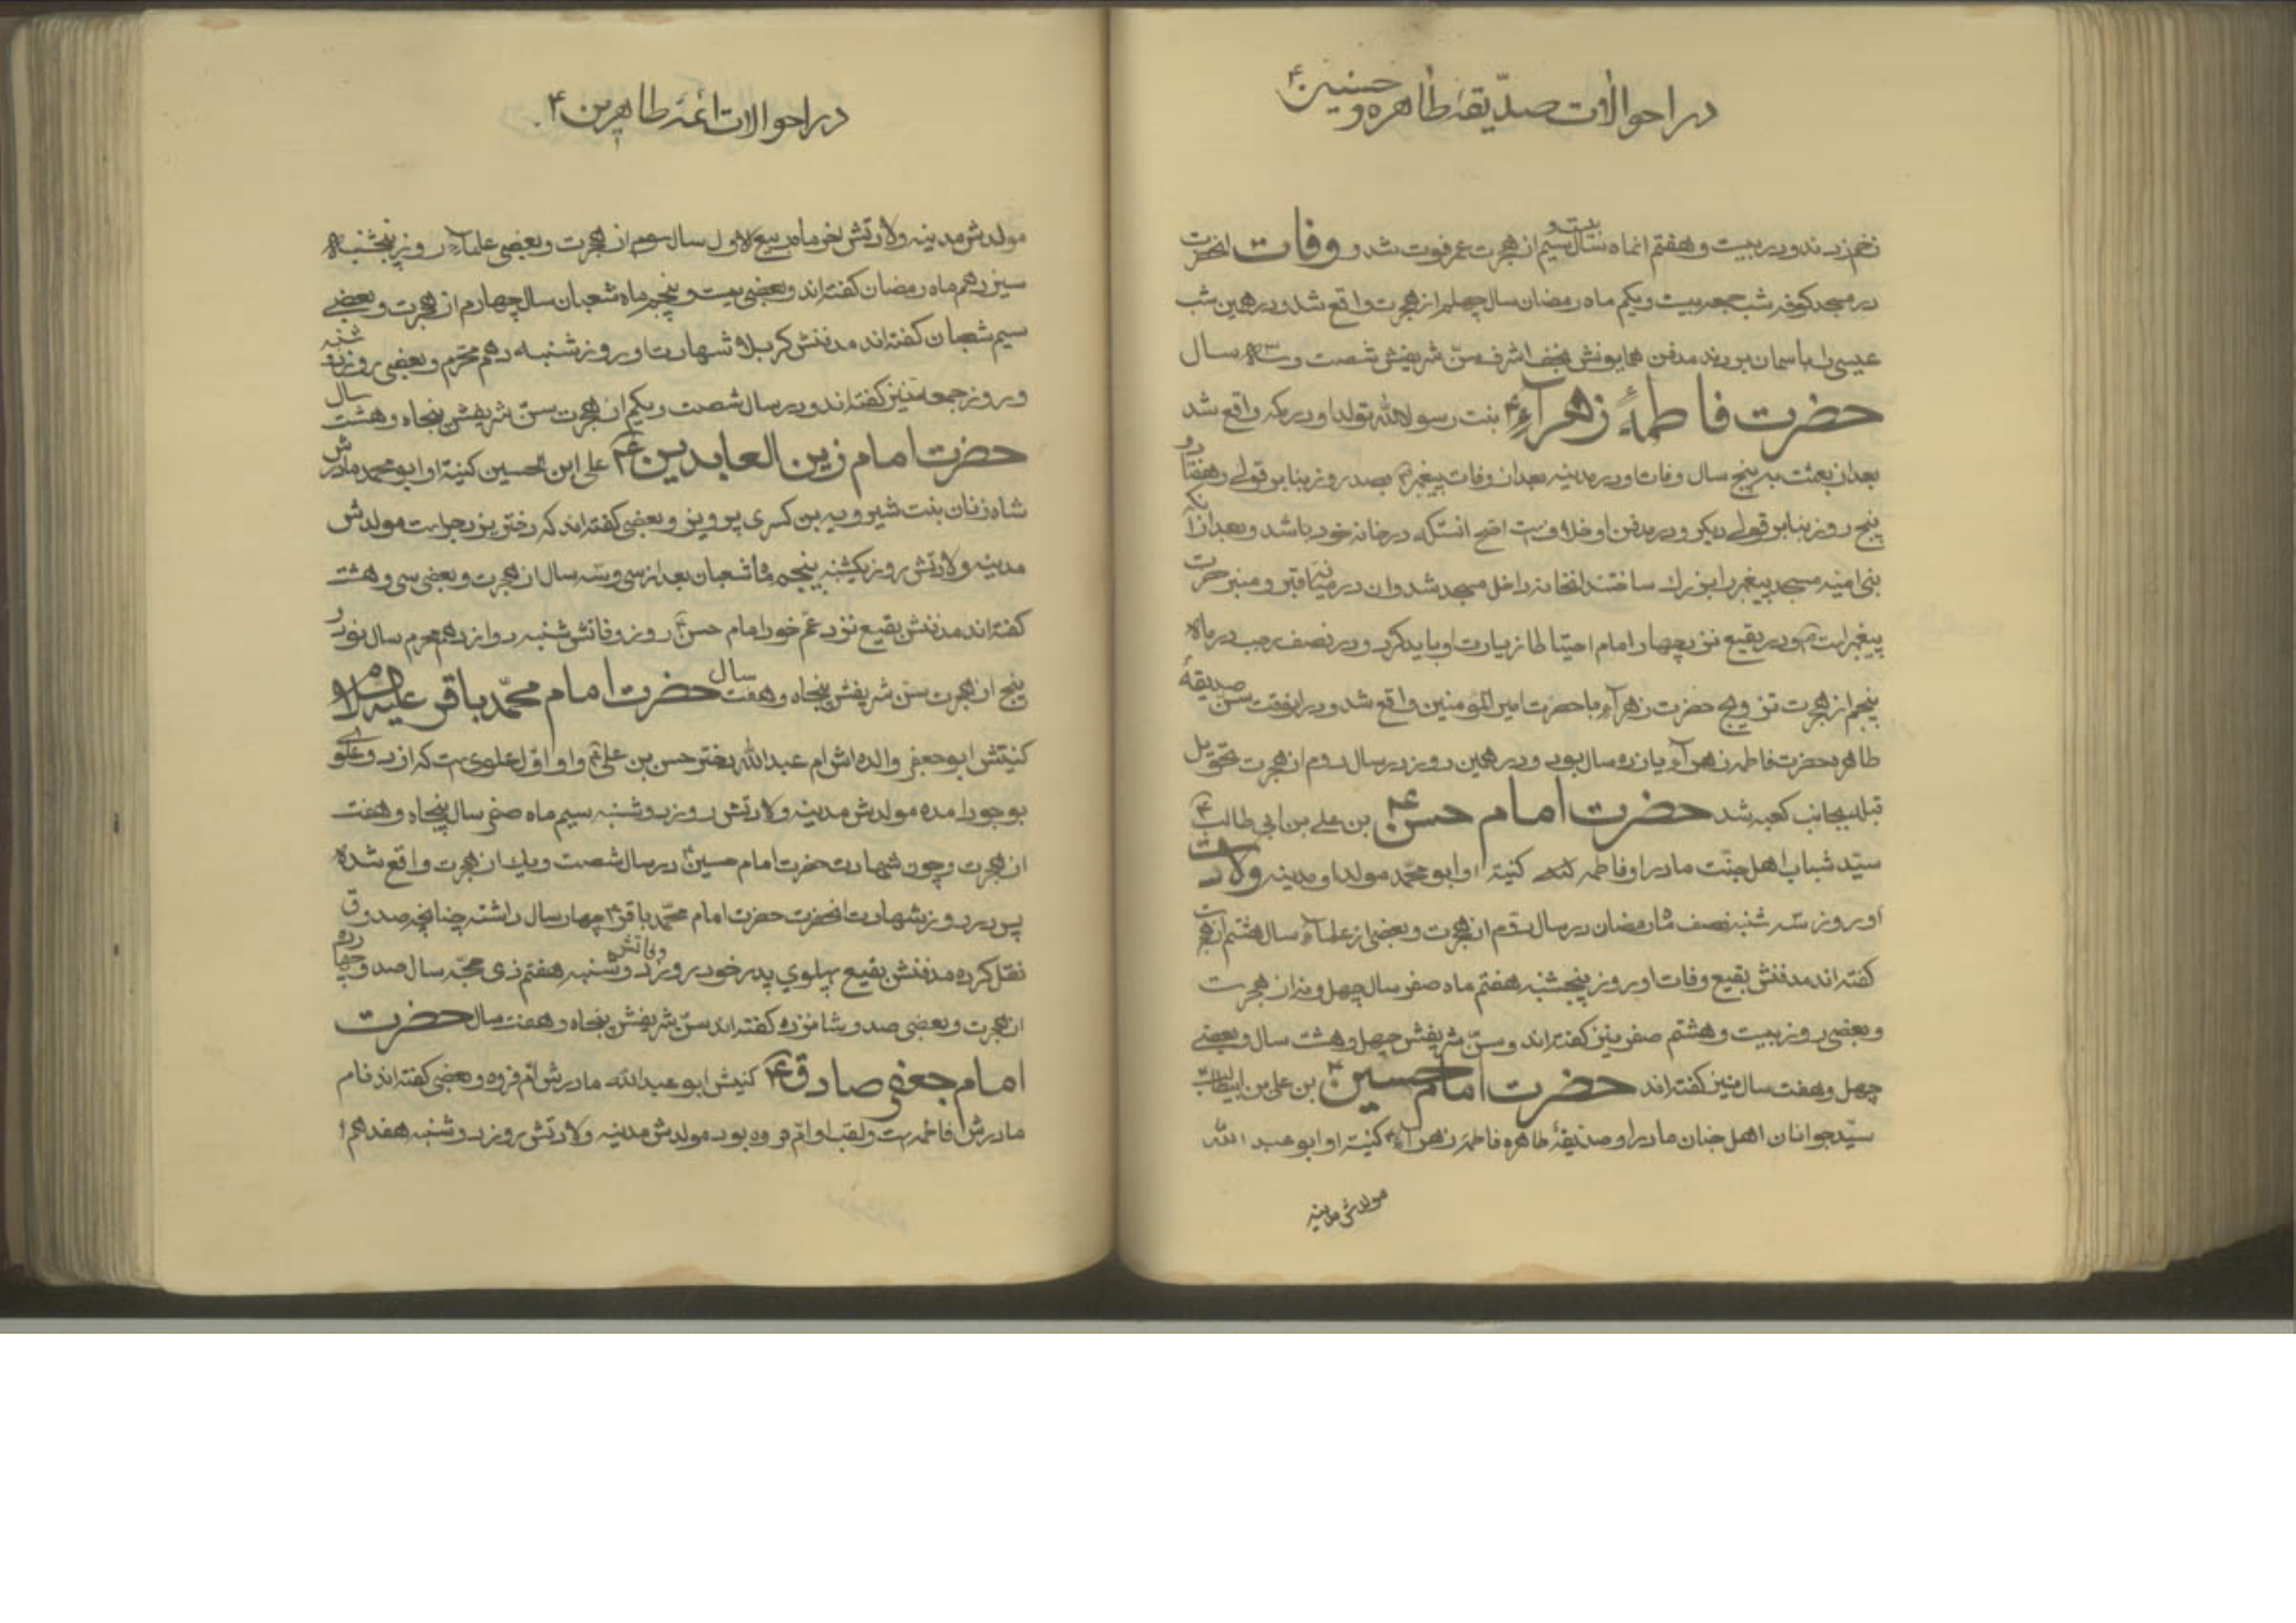 در احوالات صدّیقهٔ طاهره و حسنین ۴
زخم زدند و در بیست و هفتم انماه سال بیست و سیم از هجرت عمر فوت شد و وفات انحضرت
در مسجد کوفه شب جمعه بیست و یکم ماه رمضان سال چهلم از هجرت واقع شد و در همین شب
عیسی را باسمان بردند مدفن همایونش نجف اشرف سنّ شریفش شصت و سه سال
حضرت فاطمهٔ زهرآء ۴ بنت رسول الله تولد او در مکه واقع شد
بعد از بعثت به پنج سال وفات او در مدینه بعد از وفات پیغمبر بصد روز بنا بر قولے و هفتاد و
پنج روز بنا بر قولے دیکر و در مدفن او خلافست اصح انستکه در خانه خود باشد و بعد از آنکه
بنی امیه مسجد پیغمبر را بزرك ساختند انخانه داخل مسجد شد و ان در میانه قبر و منبر حضرت
پیغمبر است و در بقیع نزد چهار امام احتیاطا زیارت او باید کرد و در نصف رجب در ماه
پنجم از هجرت تزویج حضرت زهرآء با حضرت امیر المومنین واقع شد و در انوقت سن صدیقهٔ
طاهره حضرت فاطمه زهرآء یازده سال بود و در همین روز در سال دوم از هجرت تحویل
قبله بجانب کعبه شد حضرت امام حسن ۴ بن علے بن ابی طالب ۴
سیّد شباب اهل جنّت مادر او فاطمه کنیهٔ او ابو محمّد مولد او مدینه ولادت
او روز سه شنبه نصف ماه رمضان در سال دوّم از هجرت و بعضی از علماء سال هفتم از هجرت
کفته اند مدفنش بقیع وفات او روز پنجشنبه هفتم ماه صفر سال چهل و نه از هجرت
و بعضی روز بیست و هشتم صفر نیز کفته اند و سنّ شریفش چهل و هشت سال و بعضے
چهل و هفت سال نیز کفته اند حضرت امام حسین ۴ بن علی بن ابیطالب
سیّد جوانان اهل جنان مادر او صدّیقهٔ طاهره فاطمهٔ زهرآء ۴ کنیهٔ او ابو عبد الله
مولدش مدینه
در احوالات ائمهٔ طاهرین ۴
مولدش مدینه ولادتش اخر ماه ربیع الاول سال سوم از هجرت و بعضی علماء روز پنجشنبه
سیزدهم ماه رمضان کفته اند و بعضی بیست و پنجم ماه شعبان سال چهارم از هجرت و بعضے
سیم شعبان کفته اند مدفنش کربلا شهادت او روز شنبه دهم محرّم و بعضی روز دوشنبه
و روز جمعه نیز کفته اند و در سال شصت و یکم از هجرت سنّ شریفش پنجاه و هشت سال
حضرت امام زین العابدین ۴ علی ابن الحسین کنیهٔ او ابو محمد مادرش
شاه زنان بنت شیرویه بن کسری پرویز و بعضی کفته اند که دختر یزدجرد است مولدش
مدینه ولادتش روز یکشنبه پنجم ماه شعبان بعد از سی و سه سال از هجرت و بعضی سی و هشت
کفته اند مدفنش بقیع نزد عمّ خود امام حسن روز وفاتش شنبه دوازدهم محرم سال نود و
پنج از هجرت سنّ شریفش پنجاه و هفت سال حضرت امام محمّد باقر علیه السلام
کنیتش ابو جعفر والده اش ام عبد الله دختر حسن بن علی ۴ و او اوّل علوی است که از دو علوے
بوجود امده مولدش مدینه ولادتش روز دوشنبه سیم ماه صفر سال پنجاه و هفت
از هجرت و چون شهادت حضرت امام حسین در سال شصت و یك از هجرت واقع شده
پس در روز شهادت انحضرت حضرت امام محمّد باقر ۴ چهار سال داشته چنانچه صدوق
نقل کرده مدفنش بقیع پهلوی پدر خود وفاتش روز دوشنبه هفتم ذی حجّه سال صد و چهارده
از هجرت و بعضی صد و شانزده کفته اند سنّ شریفش پنجاه و هفت سال حضرت
امام جعفر صادق ۴ کنیتش ابو عبدالله مادرش امّ فروه و بعضی کفته اند نام
مادرش فاطمه است و لقب او امّ فروه بود مولدش مدینه ولادتش روز دوشنبه هفدهم